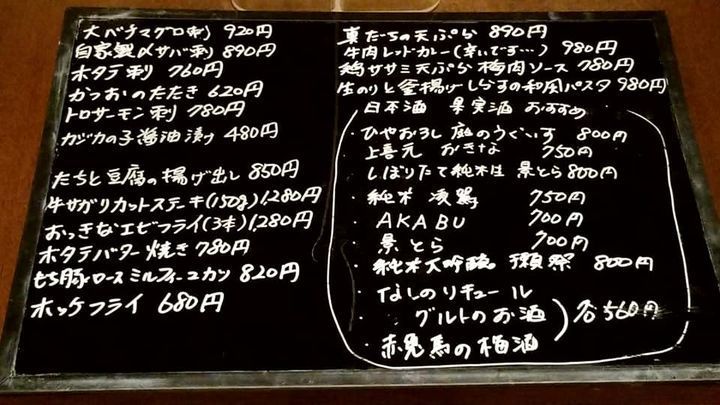 大バチマグロ刺 920円
自家製〆サバ刺 890円
ホタテ刺 760円
かつおのたたき 620円
トロサーモン刺 780円
カジカの子醤油漬け 480円
たちと豆腐の揚げ出し 850円
牛サガリカットステーキ(150g)1,280円
おっきなエビフライ(3本)1,280円
ホタテバター焼き 780円
もち豚ロースミルフィーユカツ 820円
ホッケフライ 680円
真だちの天ぷら 890円
牛肉レッドカレー(辛いです…) 980円
鶏ササミ天ぷら梅肉ソース 780円
生のりと釜揚げしらすの和風パスタ 980円
日本酒 果実酒 おすすめ
・ひやおろし 庭のうぐいす 800円
・上喜元 おきな 750円
・しぼりたて純米生 景とら 800円
・純米 750円
・AKABU 700円
・景とら 700円
・純米大吟醸 獺祭 800円
・なしのリキュール
・グルトのお酒
・赤兎馬の梅酒
各560円